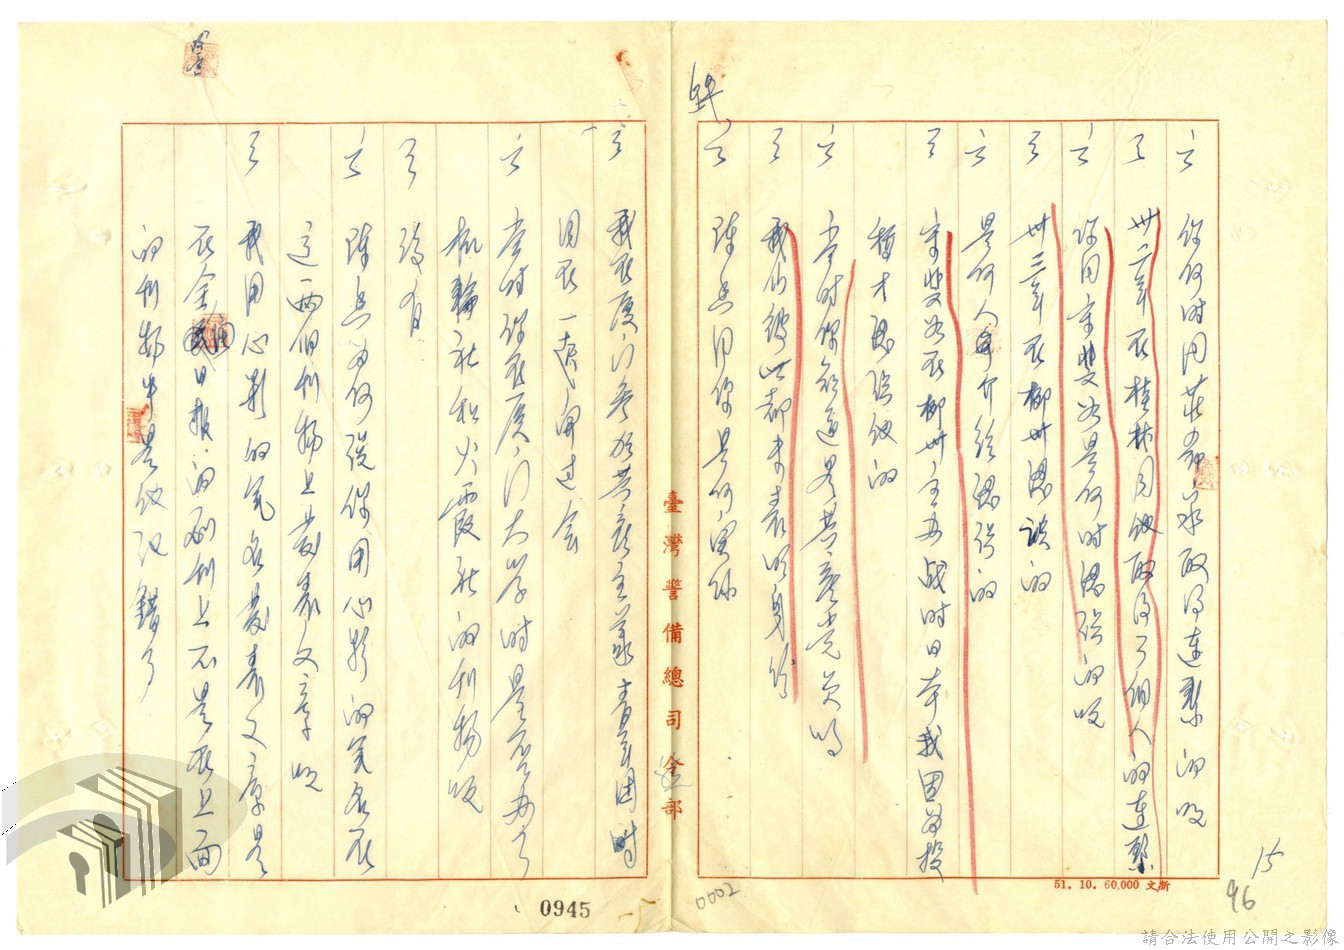 問 你何時同莊 取得連繫的呢
答 卅二年在桂林同他取得了個人的連繫
問 你同 是何時認識的呢
答 卅三年在柳州認識的
問 是何人介紹認識的
答 在柳州主辦戰時日本我因為投
稿才認識他的
問 當時你知道是共產黨員嗎
答 我們彼此都未表明身份
問 陳 同你是何關係
答 我在廈門參加共產主義青年團時
同在一起開過會
問 當時你在廈門大學時是否辦了
機輪社和火霞社的刊物呢
答 沒有
問 陳 為何說你用心影的筆名在
這一兩個刊物上發表文章呢
答 我用心影的筆名發表文章是
在 日報的副刊上不是在上面
的刊物 是他記錯了
臺灣警備總司令部
51. 10. 60,000 文新
0945
0002
15
96
請合法使用公開之影像